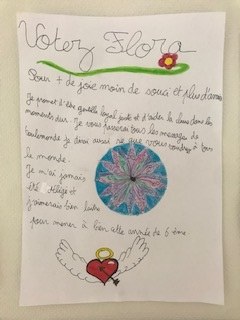 Votez Flora
Pour + de joie moin de souci et plus d'amour
Je promet d'être gentille loyal juste et d'aider la classe dans les
moments dur. Je vous passerai tous les message de
toulemonde je dirai aussi ce que vous voudrez à tous
le monde.
Je n'ai jamais
été délégé et
j'aimerais bien l'être
pour mener à bien cette année de 6 ème